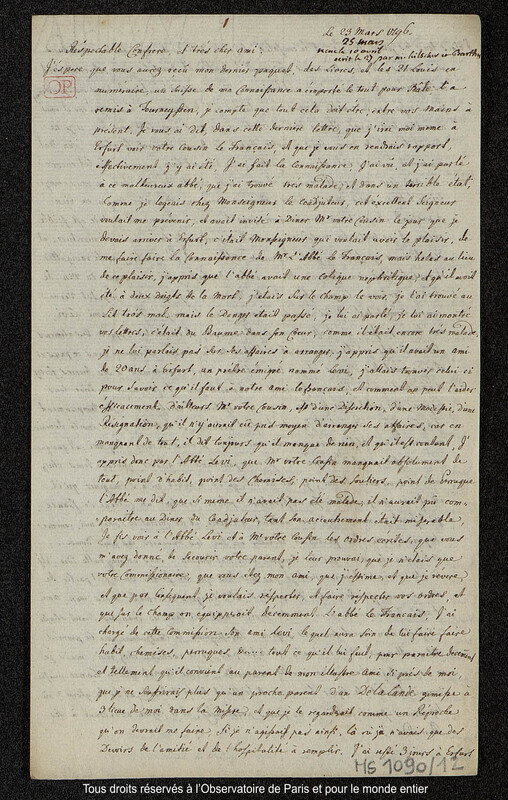 1
Le 23 Mars 1796.
25 mars
Réspectable Confrere, et tres cher ami
J'éspere que vous aurez reçû mon dernier paquet, des Livres, et les 21 Louis en
numeraire, un Suisse de ma Connaissance a emporté le tout pour Bâle, l'a
remis à je compte que tout cela doit être, entre vos mains à
present. Je vous ai dit, dans cette derniere lettre, que j'irai moi même à
Erfort voir votre cousin le Français, et que je vous en rendrais rapport,
effectivement j'y ai été, J'ai fait la Connaissance, j'ai vû, et j'ai parlé
à ce malheureux abbé, que j'ai trouvé tres malade, et dans un terrible état,
Comme je logeais chez Monseigneur le Coadjuteur, cet excellent Seigneur
voulait me prévenir, et avait invité à Diner Mr votre Cousin le jour que je
devais arriver à Erfort, c'était Monseigneur qui voulait avoir le plaisir, de
me faire faire la Connaissance de Mr L'Abbé le Français, mais helas au lieu
de ce plaisir, j'appris que l'abbé avait une colique nephrétique, et qu'il avoit
été, à deux doigts de la Mort, j'étais sur le champ le voir, je l'ai trouvé au
Lit tres mal, mais le Danger était passé, je lui ai parlé, je lui ai montré
vos lettres, c'était du Baume dans son Coeur, comme il était encore très malade,
je ne lui parlais pas sur ses affaires à arranger, j'appris qu'il avait un ami
de 20 ans à Erfort, un prêtre émigré nommé Levi, j'allais trouver celui ci
pour savoir ce qu'il faut à notre ami le français, et comment on peut l'aider
éfficacement. D'ailleurs Mr votre Cousin, est d'une Discrétion, d'une Modestie, d'une
Résignation, qu'il n'y aurait eû pas moyen d'arranger ses affaires, car en
manquant de tout, il dit toujours qu'il manque de rien, et qu'il est content. J'
appris donc par l'Abbé Levi, que Mr votre Cousin manquait absolument de
tout, point d'habit, point des Chemises, point des Souliers, point de perruque
l'Abbé me dit, que si même il n'avait pas été malade, il n'aurait pû com-
paraître au Diner du Coadjuteur, tant son accoutrement était misérable,
Je fis voir à l'Abbé Levi et à Mr votre Cousin les ordres que vous
m'avez donné, de sécourir votre parent, je leur prouvai que je n'étais que
votre Commissionaire, que vous étez mon ami, que j'estime, et que je revere
et que par conséquent, je voulais respecter, et faire respecter vos ordres, et
que sur le champ on equipperait, decemment L'abbé le Français. J'ai
chargé de cette Commission son ami Levi, lequel aura soin de lui faire faire
habit, chemises, perruques, tout ce qu'il lui faut, pour paraître decement
et tellement qu'il convient au parent de mon illustre ami si près de moi
que je ne souffrirais plus qu'un proche parent d'un De la Lande gemisse à
3 lieue de moi dans la Misere, et que je le regarderait comme un Réproche
qu'on devrait me faire, si je n'agissais pas ainsi, là où je n'avais que des
Devoirs de l'amitié et de l'hospitalité à remplir. J'ai resté 3 jours à Erfort
MS 1090/12
Tous droits réservés à l'Observatoire de Paris et pour le monde entier